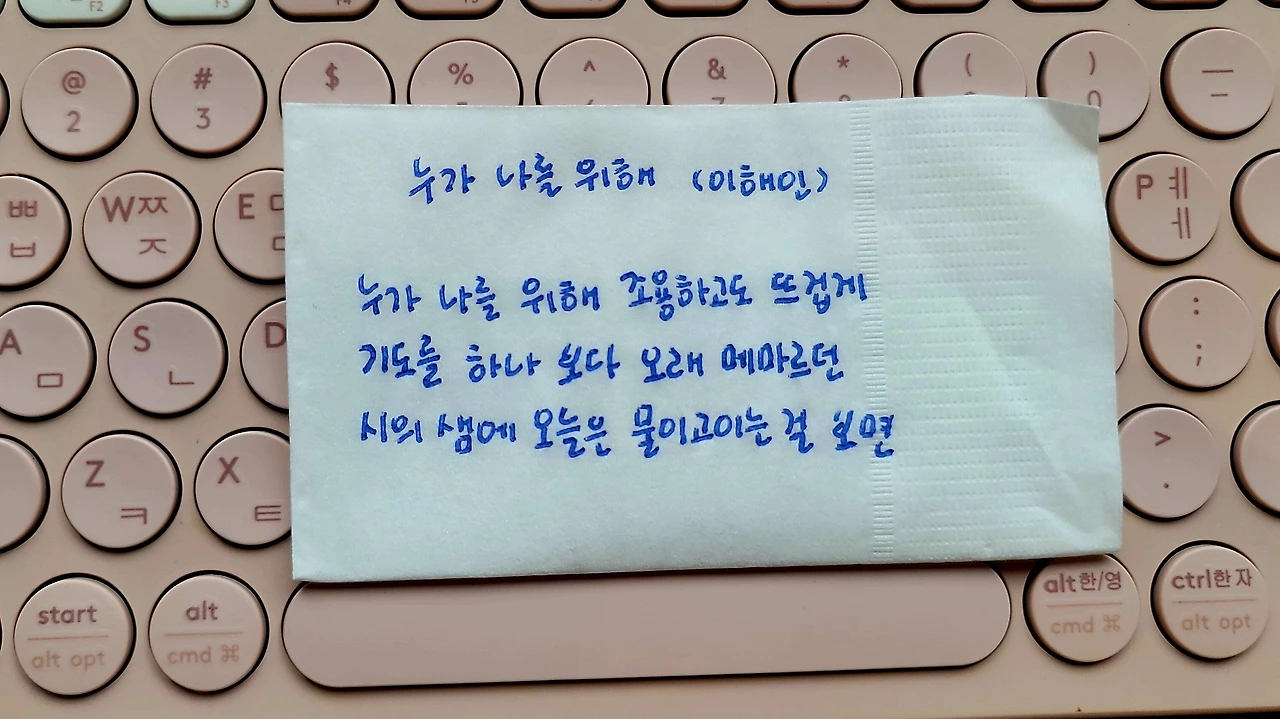 F2 F3 F4
@ # $ % ^ & * ( ) —
2 3 0 –
누가 나를 위해 (이해인)
ㅃ W ㅉ E P ㅖ
ㅂ ㅈ ㅔ
누가 나를 위해 조용하고도 뜨겁게
기도를 하나 보다 오래 메마르던
시의 샘에 오늘은 물이고이는 걸 보면
A S D :
ㅁ ㄴ ;
Z X >
ㅋ ㅌ .
start alt alt한/영 ctrl한자
alt opt cmd ⌘ cmd ⌘ alt opt